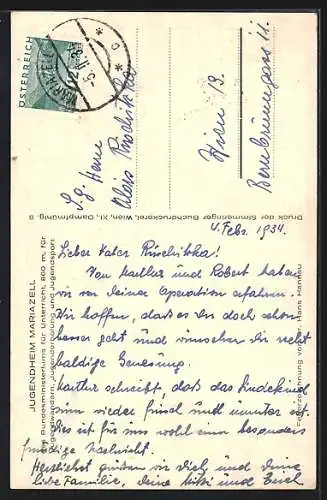 ÖSTERREICH
MARIAZELL
S.g. Herrn
Alois
Wien 13.
Druck der Simmeringer Buchdruckerei, Wien, XI., Dampfmühlg. 8
JUGENDHEIM MARIAZELL
des Bundesministeriums für Unterricht, 860 m, für
Jugendwandern, Jugenderholung und Jugendsport
4. Febr. 1934.
Lieber Vater
Von und Robert haben
wir von deiner Operation erfahren.
Wir hoffen, daß es dir doch schon
besser geht und wünschen dir recht
baldige Genesung.
schreibt, daß das
nun wieder frisch und munter ist.
dies ist für uns wohl eine besonders
freudige Nachricht.
Herzlichst grüßen wir dich und deine
liebe Familie, deine und